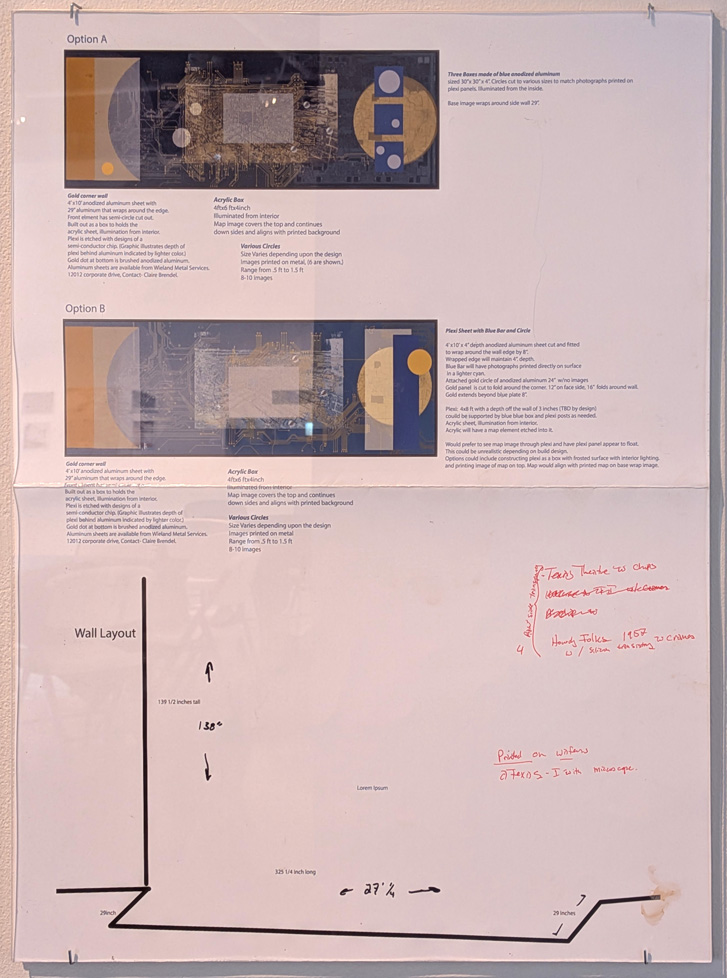 Option A
Three Boxes made of blue anodized aluminum
sized 30"x 30" x 4". Circles cut to various sizes to match photographs printed on
plexi panels. Illuminated from the inside.
Base image wraps around side wall 29".
Gold corner wall
4'x10' anodized aluminum sheet with
29" aluminum that wraps around the edge.
Front elment has semi-circle cut out.
Built out as a box to holds the
acrylic sheet, illumination from interior.
Plexi is etched with designs of a
semi-conductor chip. (Graphic illustrates depth of
plexi behind aluminum indicated by lighter color.)
Gold dot at bottom is brushed anodized aluminum.
Aluminum sheets are available from Wieland Metal Services.
12012 corporate drive, Contact- Claire Brendel.
Acrylic Box
4ftx6 ftx4inch
Illuminated from interior
Map image covers the top and continues
down sides and aligns with printed background
Various Circles
Size Varies depending upon the design
Images printed on metal, (6 are shown.)
Range from .5 ft to 1.5 ft
8-10 images
Option B
Plexi Sheet with Blue Bar and Circle
4'x10'x 4" depth anodized aluminum sheet cut and fitted
to wrap around the wall edge by 8".
Wrapped edge will maintain 4". depth.
Blue Bar will have photographs printed directly on surface
in a lighter cyan.
Attached gold circle of anodized aluminum 24" w/no images
Gold panel is cut to fold around the corner. 12" on face side, 16" folds around wall.
Gold extends beyond blue plate 8".
Plexi: 4x8 ft with a depth off the wall of 3 inches (TBD by design)
could be supported by blue blue box and plexi posts as needed.
Acrylic sheet, illumination from interior.
Acrylic will have a map element etched into it.
Would prefer to see map image through plexi and have plexi panel appear to float.
This could be unrealistic depending on build design.
Options could include constructing plexi as a box with frosted surface with interior lighting,
and printing image of map on top. Map would align with printed map on base wrap image.
Gold corner wall
4'x10' anodized aluminum sheet with
29" aluminum that wraps around the edge.
Built out as a box to holds the
acrylic sheet, illumination from interior.
Plexi is etched with designs of a
semi-conductor chip. (Graphic illustrates depth of
plexi behind aluminum indicated by lighter color.)
Gold dot at bottom is brushed anodized aluminum.
Aluminum sheets are available from Wieland Metal Services.
12012 corporate drive, Contact- Claire Brendel.
Acrylic Box
4ftx6 ftx4inch
Illuminated from interior
Map image covers the top and continues
down sides and aligns with printed background
Various Circles
Size Varies depending upon the design
Images printed on metal
Range from .5 ft to 1.5 ft
8-10 images
- Texas Theatre w chips
Howdy Folks 1957
4
Wall Layout
139 1/2 inches tall
138"
Printed on wafers
2 Texas - I with microscope.
Lorem Ipsum
325 1/4 inch long
27' 1/4
29inch
29 inches